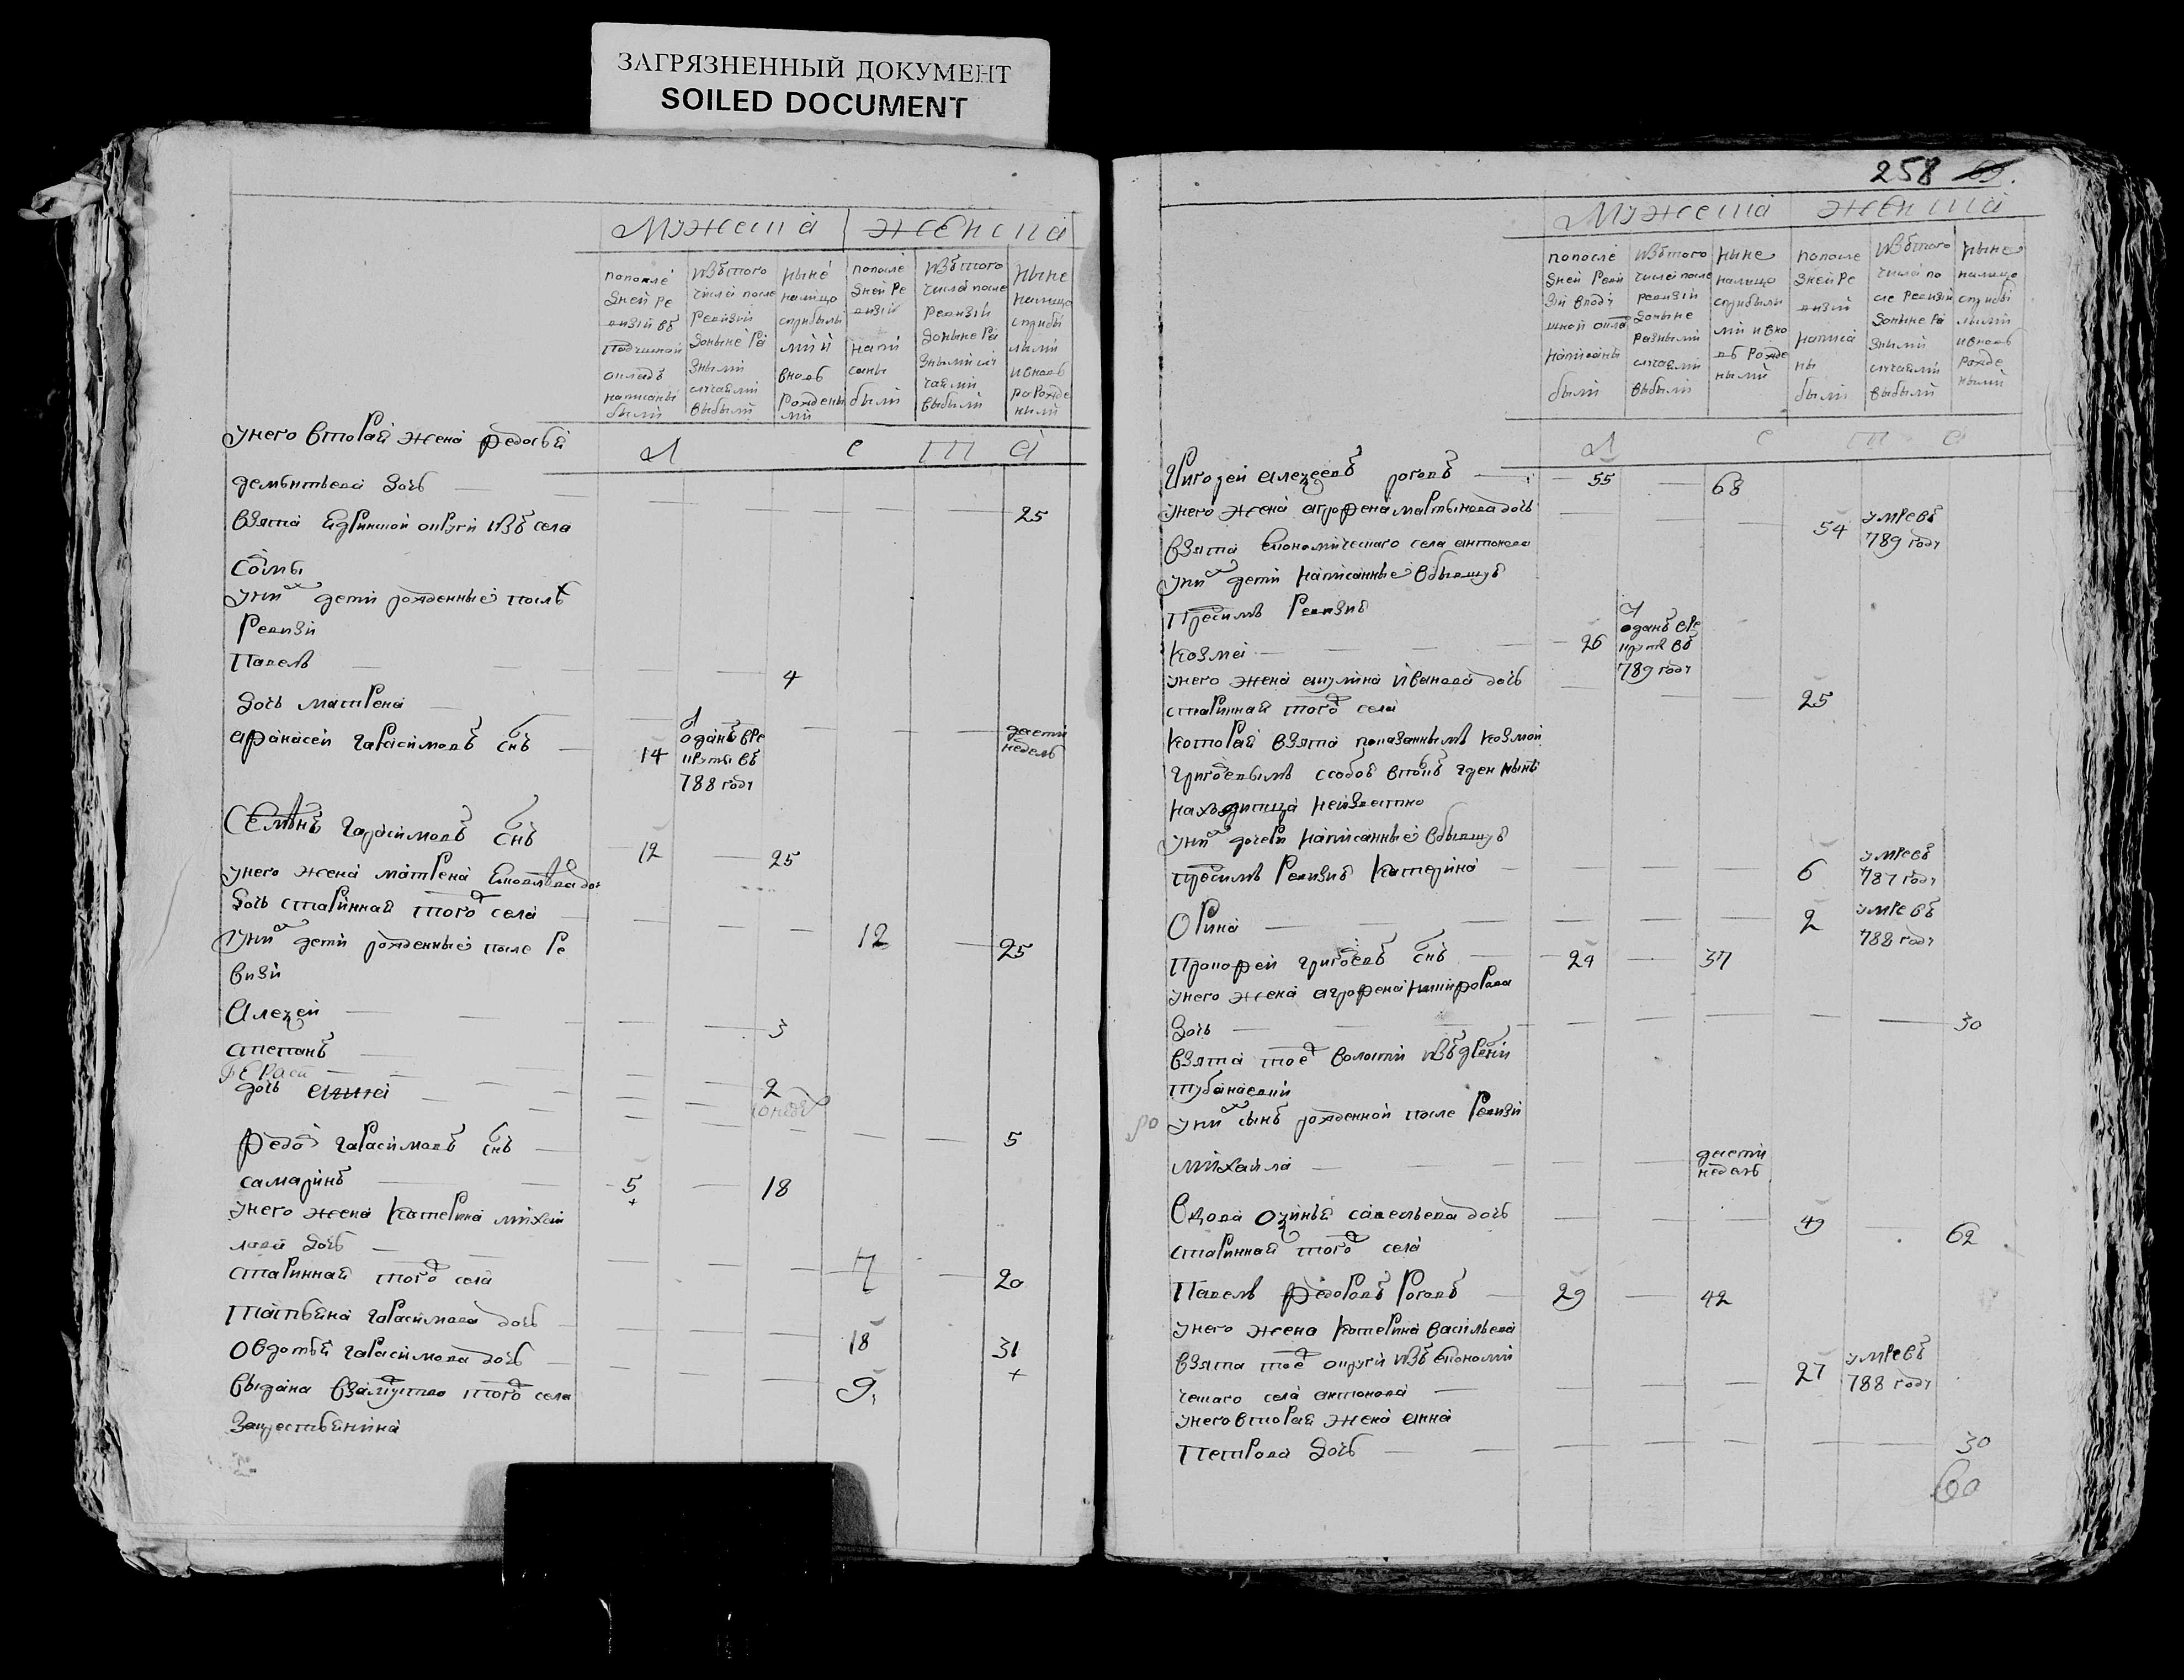 ЗАГРЯЗНЕННЫЙ ДОКУМЕНТ
SOILED DOCUMENT
Мужеска женска
попосле дней ре визии въ подушной окладъ написаны были
изътого числа после ревизии доныне ра зными случаями выбыли
ныне налицо сприбылы ми и вновь рожденны ми
попосле дней ре визии напи саны были
изътого числа после ревизии доныне ра зными слу чаями выбыли
ныне налицо сприбы лыми ивновь рожде ными
Л е т а
унего вторая жена федосья
дементьева дочь 25
взята ядринской округи изъ села
унихъ дети рожденные послѣ
Ревизи
Павелъ 4
дочь матрена шести недель
афанасеи гарасимовъ снъ 14 оданъ вре круты въ 788 году
Семѣнъ гарасимовъ снъ 12 25
унего жена матрена
дочь старинная того села 12 25
унихъ дети рожденные после Ре
визи
Алеѯеи 3
степанъ 2
дочь 5
федоръ гарасимовъ снъ
самаринъ 5 18
унего жена катерина михаи
лова дочь
старинная того села 7 20
татьяна гарасимова дочь 18 31
овдотья гарасимова дочь 9
выдана взамуство того села
258
Мужеска женска
попосле дней реви зии вподу шной окла написаны были
изътого числа после ревизии доныне разными случаями выбыли
ныне налицо сприбылы ми ивно въ рожде ными
попосле дней ре визии написа ны были
изътого числа по сле ревизии доныне ра зными случаями выбыли
ныне налицо сприбы лыми ивновь рожде ными
Л е т а
Григореи алеѯеевъ роговъ 55 68
унего жена агрофена мартынова дочь 54 умре въ 789 году
взята економическаго села антонова
унихъ дети написанные вбывшую
Пресимъ Ревизию
козма 26 оданъ вре круты въ 789 году
унего жена акулина иванова дочь
старинная того села 25
которая взята показаннымъ козмой
григоевымъ ссобою где ныне
находитца неизвестно
унихъ дочери написанные вбывшую
пресимъ ревизию катерина 6 умре въ 787 году
Орина 2 умре въ 788 году
Прокофеи григоевъ снъ 24 37
унего жена агрофена никифорова
дочь 30
взята тое волости изъ дрени
тубанаевки
унихъ сынъ рожденной после Ревизи
михаила шести недель
Вдова оѯинья савельева дочь 49 62
старинная того села
Павелъ Федоровъ Роговъ 29 42
унего жена катерина васильева
взята тое округи изъ економи 27 умре въ 788 году
ческаго села антонова
унего вторая жена анна
Петрова дочь 30
60